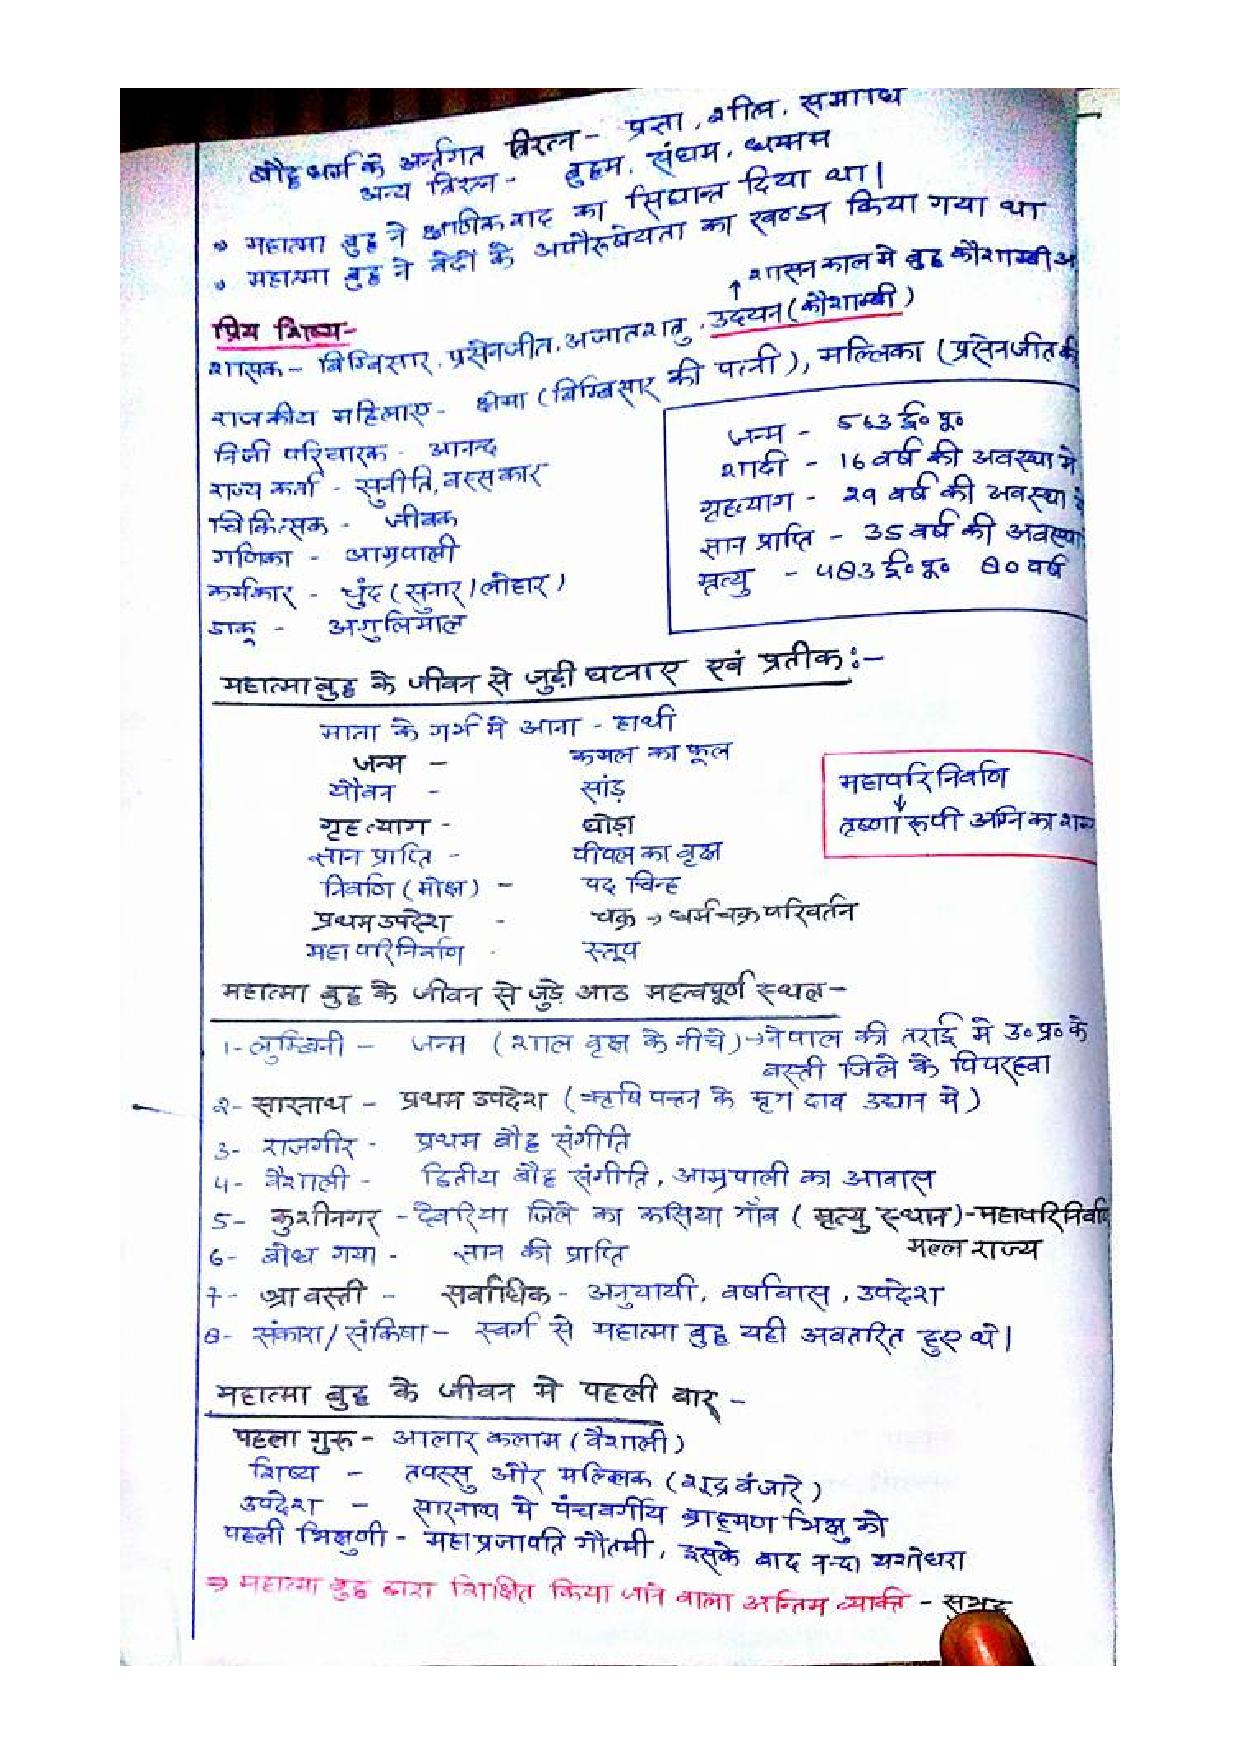 बौद्ध धर्म के अर्न्तगत त्रिरत्न - प्रज्ञा, शील, समाधि
अन्य त्रिरत्न - बुद्धम, संघम, धम्मम
• महात्मा बुद्ध ने क्षणिकवाद का सिद्धान्त दिया था।
• महात्मा बुद्ध ने वेदों के अपौरूषेयता का खण्डन किया गया था
↑ शासन काल मे बुद्ध कौशाम्बी
प्रिय शिष्य-
शासक - बिम्बिसार, प्रसेनजीत, अजातशत्रु, उदयन (कौशाम्बी)
राजकीय महिलाए - क्षेमा (बिम्बिसार की पत्नी), मल्लिका (प्रसेनजीत की
निजी परिचारक - आनन्द
राज्य कर्ता - सुनीति, वस्सकार
चिकित्सक - जीवक
गणिका - आम्रपाली
कर्मकार - चुंद (सुनार/लोहार)
डाकू - अंगुलिमाल
जन्म - 563 ई० पू०
शादी - 16 वर्ष की अवस्था मे
गृहत्याग - 29 वर्ष की अवस्था मे
ज्ञान प्राप्ति - 35 वर्ष की अवस्था
मृत्यु - 483 ई० पू० 80 वर्ष
महात्मा बुद्ध के जीवन से जुडी घटनाए एवं प्रतीक:-
माता के गर्भ मे आना - हाथी
जन्म - कमल का फूल
यौवन - सांड़
गृहत्याग - घोड़ा
ज्ञान प्राप्ति - पीपल का वृक्ष
निर्वाण (मोक्ष) - पद चिन्ह
प्रथम उपदेश - चक्र → धर्मचक्र परिवर्तन
महापरिनिर्वाण - स्तूप
महापरिनिर्वाण
↓
तृष्णा रूपी अग्नि का
महात्मा बुद्ध के जीवन से जुड़े आठ महत्वपूर्ण स्थल-
1- लुम्बिनी - जन्म (शाल वृक्ष के नीचे) → नेपाल की तराई मे उ० प्र० के
बस्ती जिले के पिपरहवा
2- सारनाथ - प्रथम उपदेश (ऋषि पत्तन के मृग दाव उद्यान मे)
3- राजगीर - प्रथम बौद्ध संगीति
4- वैशाली - द्वितीय बौद्ध संगीति, आम्रपाली का आवास
5- कुशीनगर - देवरिया जिले का कसिया गाँव (मृत्यु स्थान) - महापरिनिर्वाण
मल्ल राज्य
6- बोध गया - ज्ञान की प्राप्ति
7- श्रावस्ती - सर्वाधिक - अनुयायी, वर्षावास, उपदेश
8- संकारा/संकिषा - स्वर्ग से महात्मा बुद्ध यही अवतरित हुए थे।
महात्मा बुद्ध के जीवन मे पहली बार -
पहला गुरू - आलार कलाम (वैशाली)
शिष्य - तपस्सु और मल्लिक (शूद्र बंजारे)
उपदेश - सारनाथ मे पंचवर्गीय ब्राह्मण भिक्षु को
पहली भिक्षुणी - महाप्रजापति गौतमी, इसके बाद नन्दा यशोधरा
⇒ महात्मा बुद्ध द्वारा शिक्षित किया जाने वाला अन्तिम व्यक्ति - सुभद्द